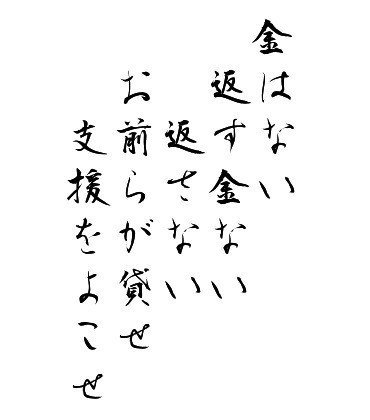 金はない
返す金ない
返さない
お前らが貸せ
支援をよこせ